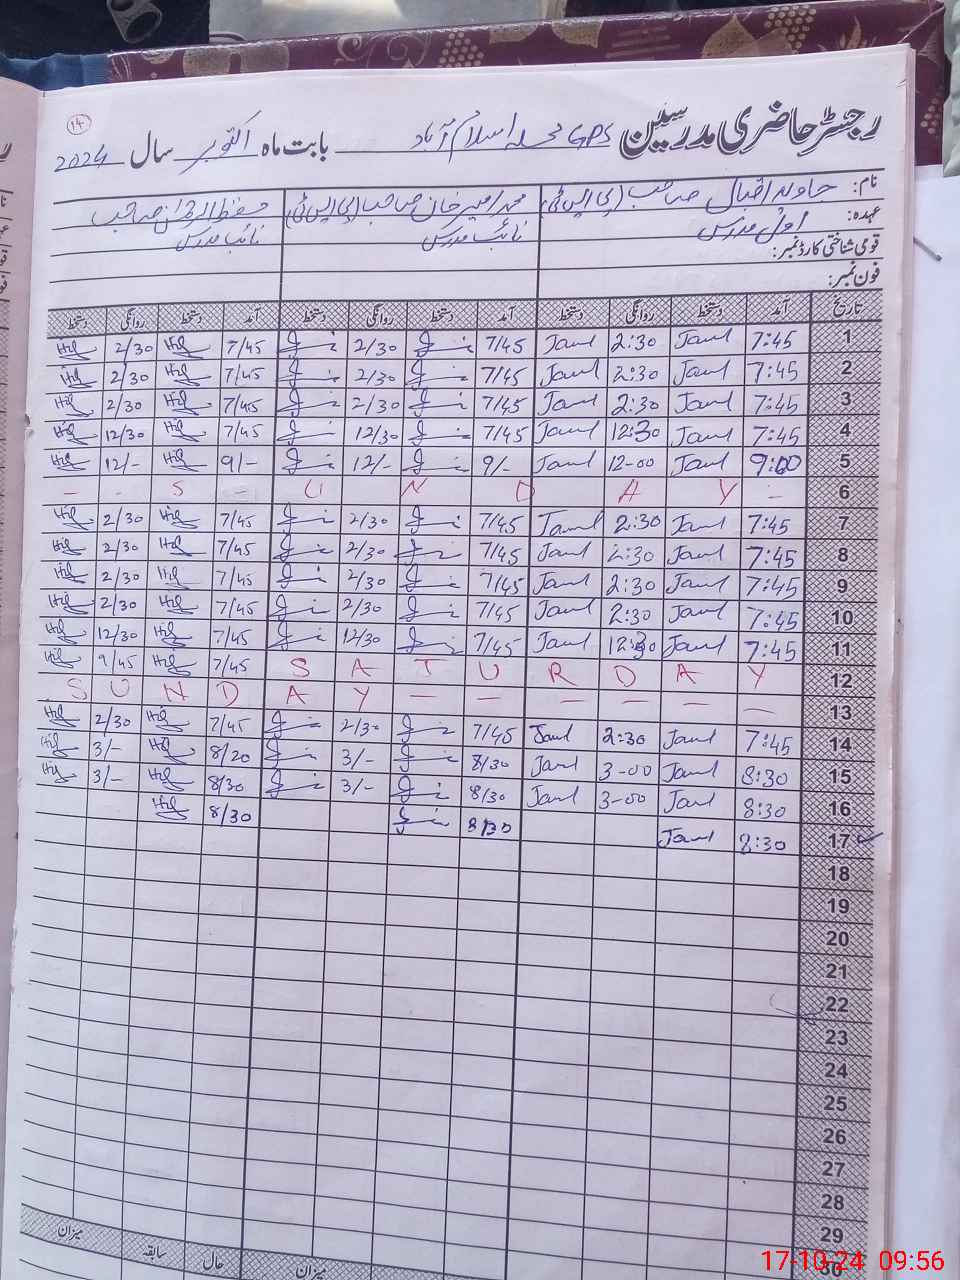 ۱۴
رجسٹر حاضری مدرسین GPS محلہ اسلام آباد بابت ماہ اکتوبر سال 2024
نام: جاوید اقبال صاحب (پی ایس ٹی) محمد امیر خان صاحب (پی ایس ٹی) حفیظ الرحمٰن صاحب
عہدہ: اول مدرس نائب مدرس نائب مدرس
قومی شناختی کارڈ نمبر:
فون نمبر:
تاریخ آمد دستخط روانگی دستخط آمد دستخط روانگی دستخط آمد دستخط روانگی دستخط
1 7:45 Jawl 2:30 Jawl 7/45 2/30 7/45 2/30
2 7:45 Jawl 2:30 Jawl 7/45 2/30 7/45 2/30
3 7:45 Jawl 2:30 Jawl 7/45 2/30 7/45 2/30
4 7:45 Jawl 12:30 Jawl 7/45 12/30 7/45 12/30
5 9:00 Jawl 12-00 Jawl 9/- 12/- 9/- 12/-
6 - - S - U N D A Y -
7 7:45 Jawl 2:30 Jawl 7/45 2/30 7/45 2/30
8 7:45 Jawl 2:30 Jawl 7/45 2/30 7/45 2/30
9 7:45 Jawl 2:30 Jawl 7/45 2/30 7/45 2/30
10 7:45 Jawl 2:30 Jawl 7/45 2/30 7/45 2/30
11 7:45 Jawl 12:30 Jawl 7/45 12/30 7/45 12/30
12 7/45 9/45 S A T U R D A Y
13 S U N D A Y - - - - - -
14 7:45 Jawl 2:30 Jawl 7/45 2/30 7/45 2/30
15 8:30 Jawl 3-00 Jawl 8/30 3/- 8/20 3/-
16 8:30 Jawl 3-00 Jawl 8/30 3/- 8/30 3/-
17 8:30 Jawl 8/30 8/30
18
19
20
21
22
23
24
25
26
27
28
29
30
میزان حال سابقہ میزان
17-10-24 09:56